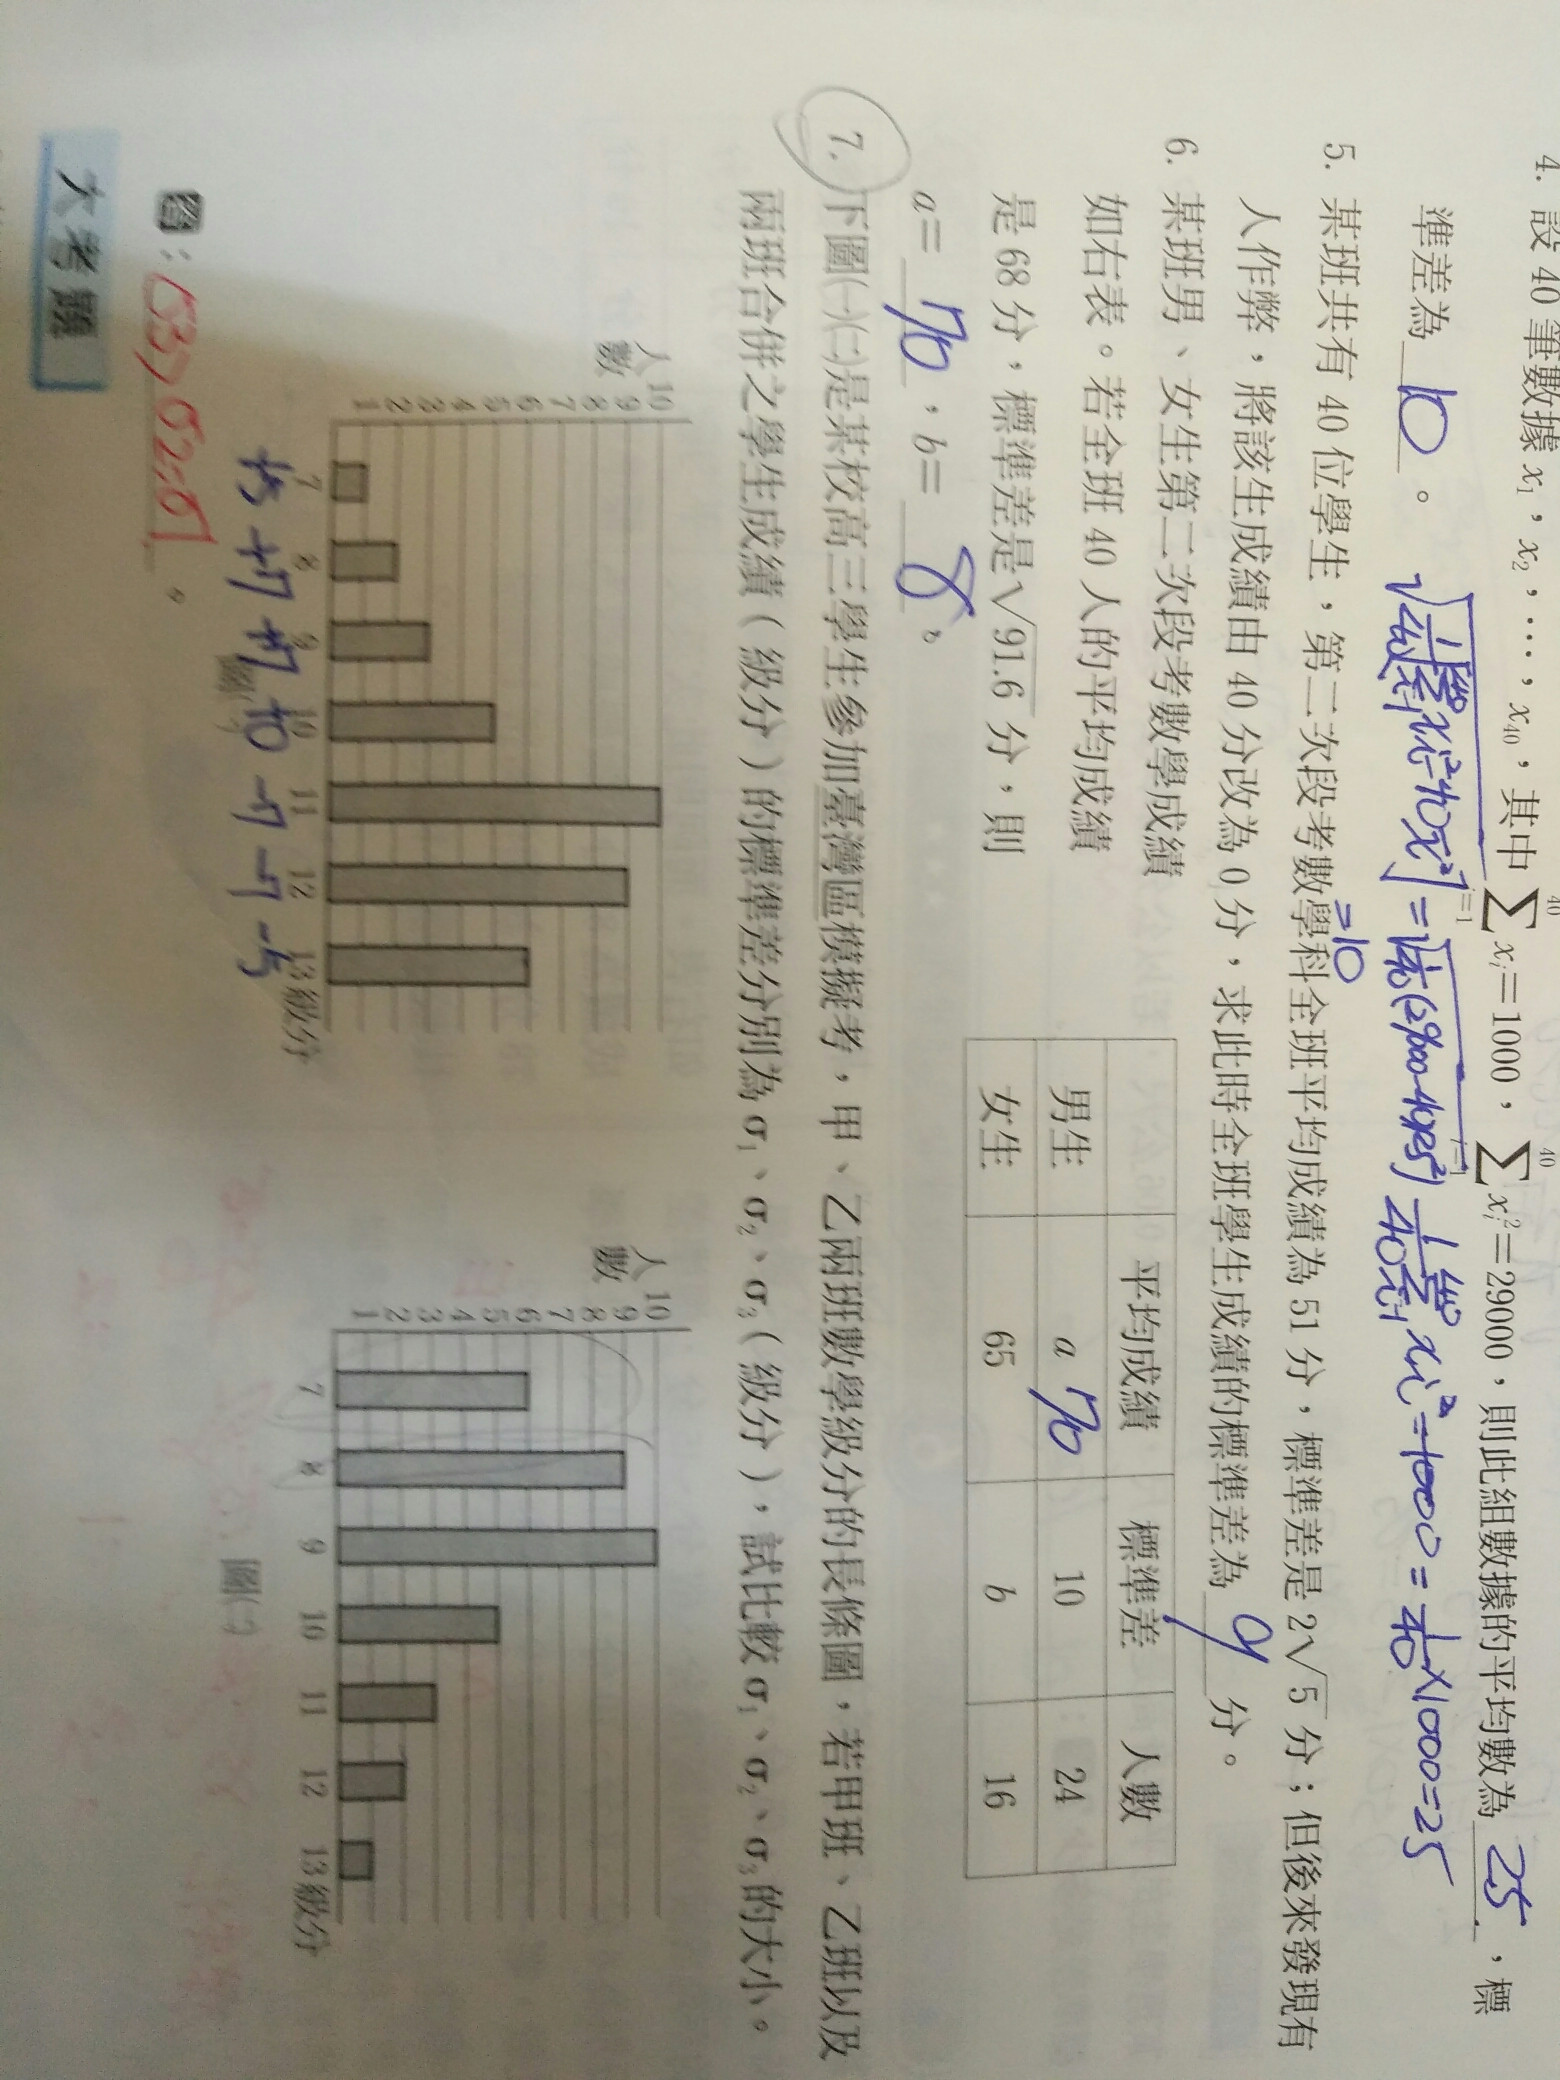 4. 設 40 筆數據 x₁，x₂，…，x₄₀，其中 ∑ᵢ₌₁⁴⁰ xᵢ=1000，∑ᵢ₌₁⁴⁰ xᵢ²=29000，則此組數據的平均數為 25，標
準差為 10。
=10
5. 某班共有 40 位學生，第二次段考數學科全班平均成績為 51 分，標準差是 2√5 分；但後來發現有
人作弊，將該生成績由 40 分改為 0 分，求此時全班學生成績的標準差為 9 分。
6. 某班男、女生第二次段考數學成績
如右表。若全班 40 人的平均成績
是 68 分，標準差是√91.6 分，則
a= 70，b= 8。
平均成績 標準差 人數
男生 a 70 10 24
女生 65 b 16
7. 下圖㈠㈡是某校高三學生參加臺灣區模擬考，甲、乙兩班數學級分的長條圖，若甲班、乙班以及
兩班合併之學生成績（級分）的標準差分別為 σ₁、σ₂、σ₃（級分），試比較 σ₁、σ₂、σ₃ 的大小。
人數
10
9
8
7
6
5
4
3
2
1
7 8 9 10 11 12 13 級分
+5 +7 +7 +0 -7 -7 -5
人數
10
9
8
7
6
5
4
3
2
1
7 8 9 10 11 12 13 級分
圖㈡
答：σ3>σ2=σ1。
大考題